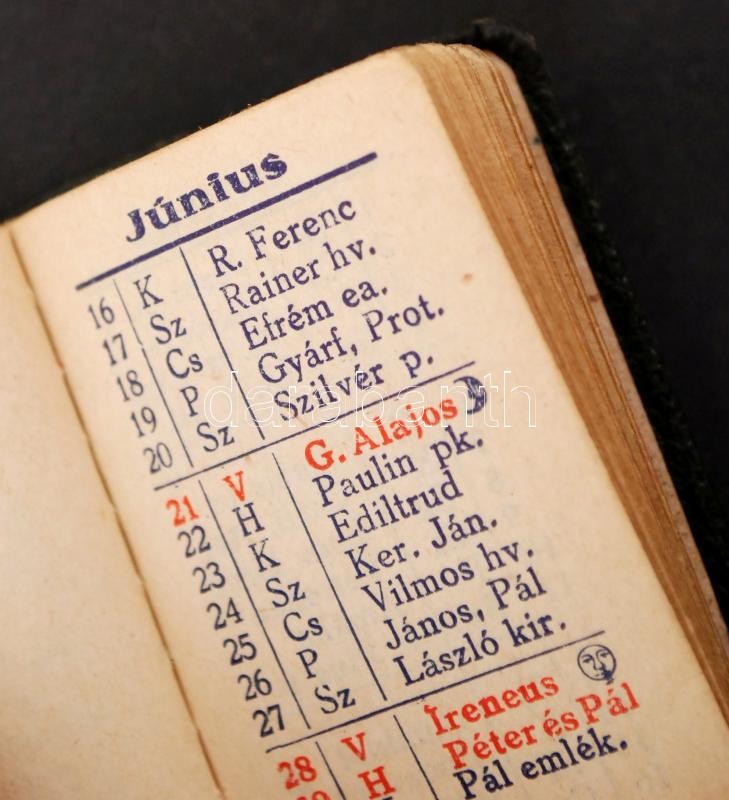 Június
16 K R. Ferenc
17 Sz Rainer hv.
18 Cs Efrém ea.
19 P Gyárf, Prot.
20 Sz Szilvér p.
21 V G. Alajos
22 H Paulin pk.
23 K Ediltrud
24 Sz Ker. Ján.
25 Cs Vilmos hv.
26 P János, Pál
27 Sz László kir.
28 V Íreneus
H Péter és Pál
Pál emlék.
darabanth